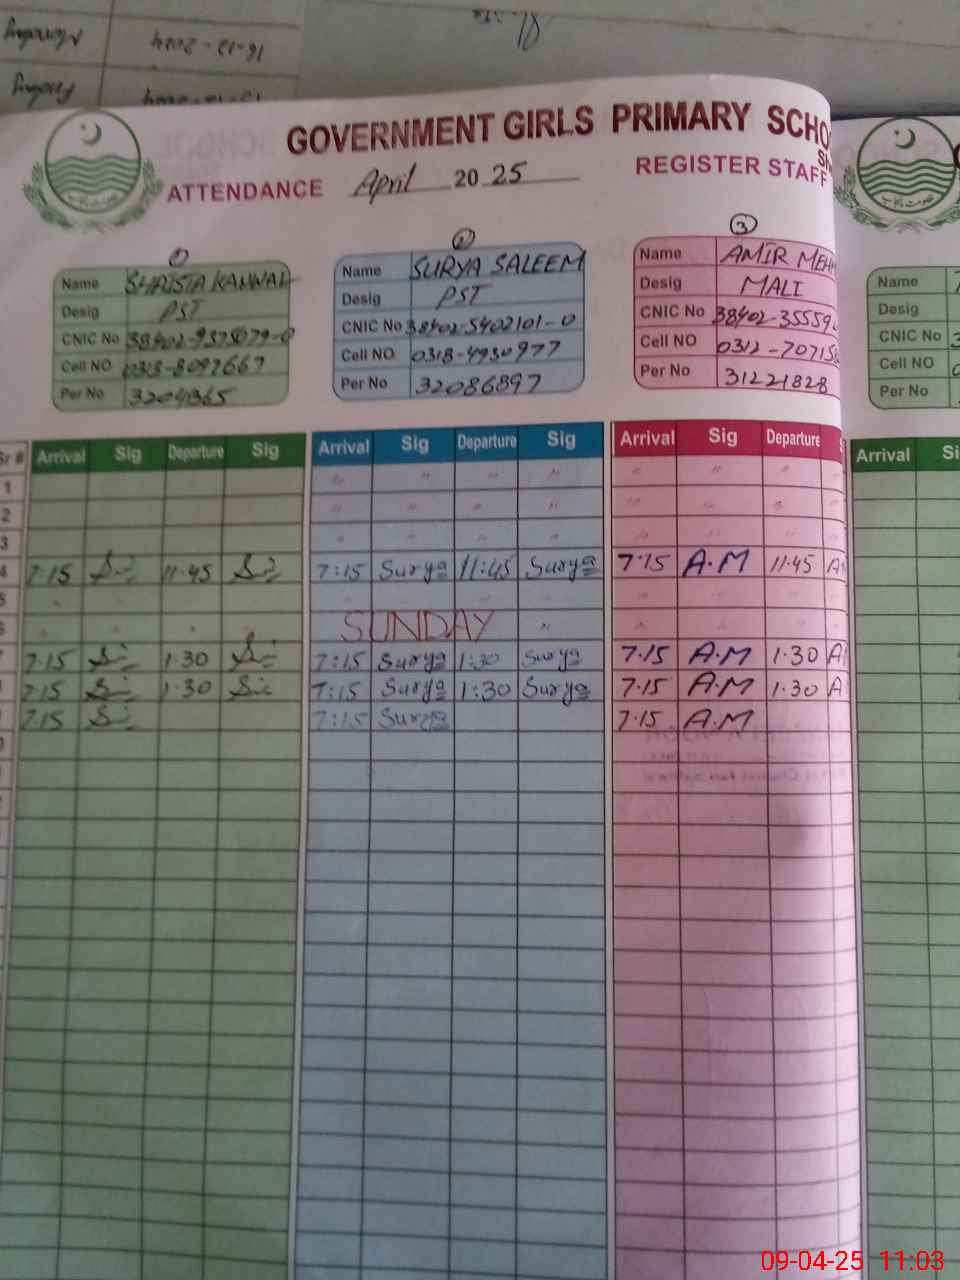 16-12-2024
GOVERNMENT GIRLS PRIMARY SCHO
ATTENDANCE April 2025 REGISTER STAFF
1 2 3
Name SHAISTA KANWAL
Desig PST
CNIC No 38402-9375079-0
Cell NO 0313-8097667
Per No
Name SURYA SALEEM
Desig PST
CNIC No 38402-5402101-0
Cell NO 0318-4930977
Per No 32086897
Name AMIR MEH
Desig MALI
CNIC No 38402-35559
Cell NO 0312-70715
Per No 31221828
Name
Desig
CNIC No 3
Cell NO 0
Per No
Sr # Arrival Sig Departure Sig Arrival Sig Departure Sig Arrival Sig Departure S Arrival Si
1 " " " " " " "
2 " " " " " " "
3 " " " " " " "
4 7:15 11:45 7:15 Surya 11:45 Surya 7:15 A.M 11:45 A
5 " " " " " " "
6 SUNDAY " " " "
7:15 1:30 7:15 Surya 1:30 Surya 7:15 A.M 1:30 A
7:15 1:30 7:15 Surya 1:30 Surya 7:15 A.M 1:30 A
7:15 7:15 Surya 7:15 A.M
09-04-25 11:03